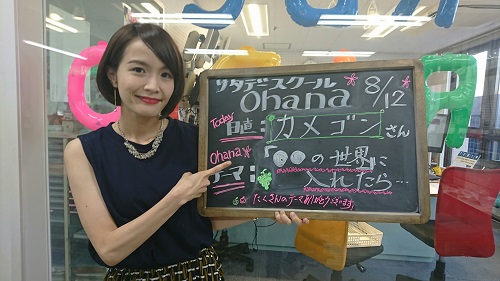 サタデースクール
Ohana 8/12
Today
日直:カメゴンさん
Ohana
テーマ:「●●の世界に
入れたら…
たくさんのテーマありがとうございます